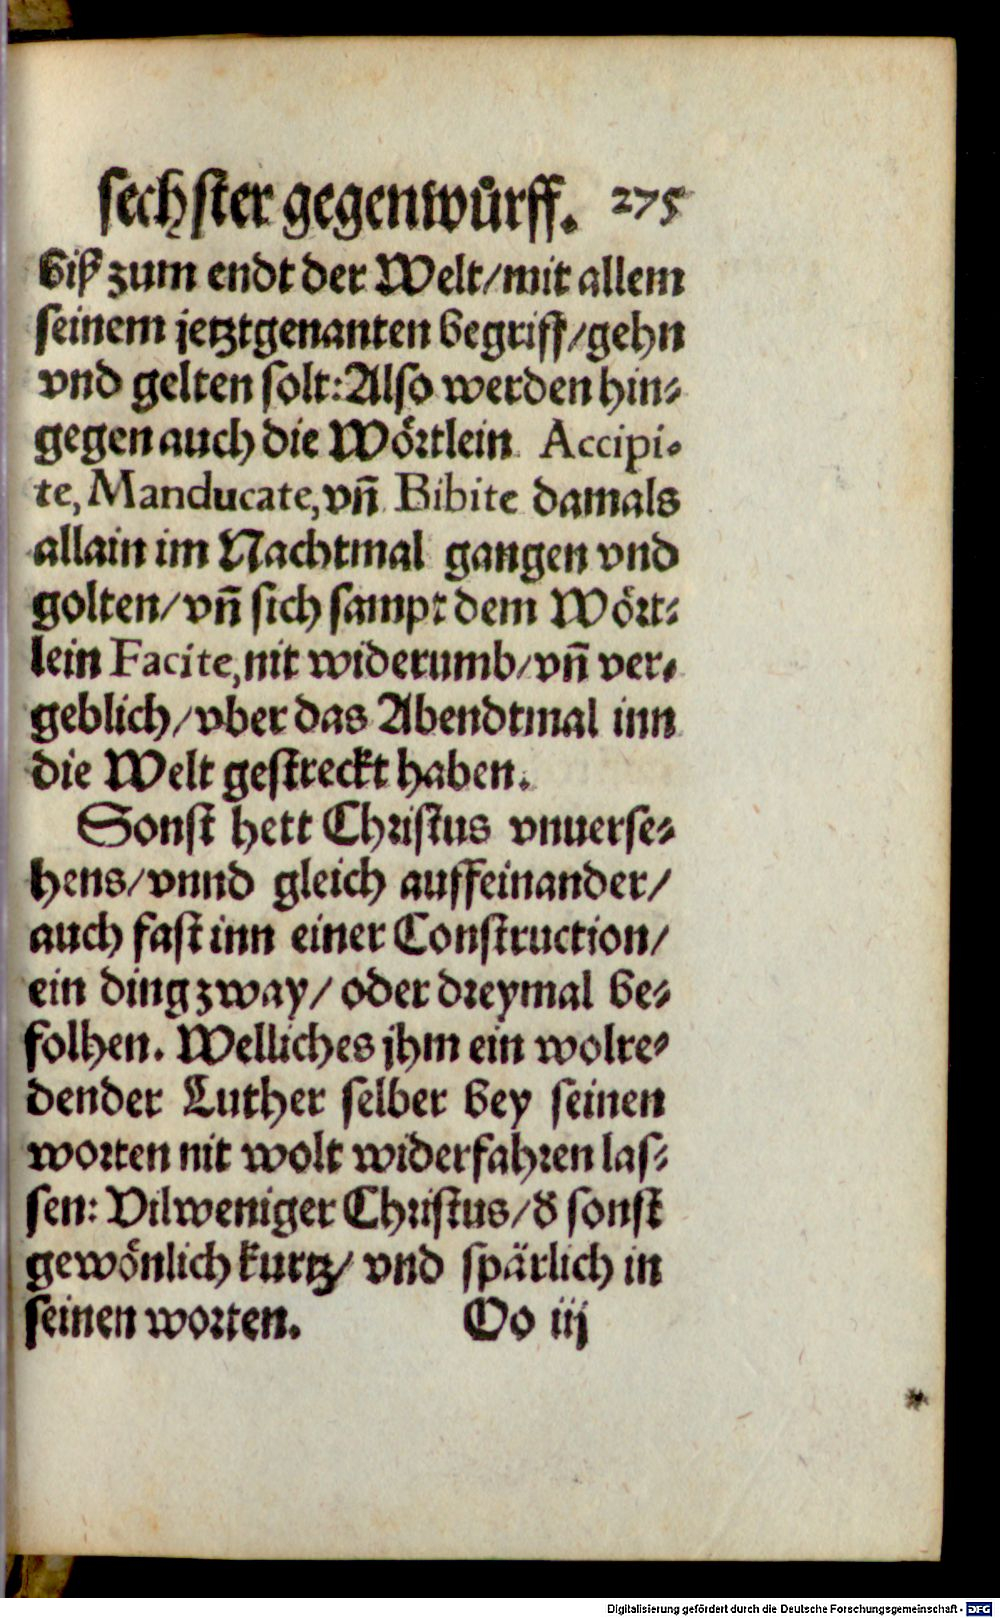 sechster gegenwůrff. 275
biß zum endt der Welt/mit allem
seinem jetztgenanten begriff/gehn
vnd gelten solt: Also werden hin⸗
gegen auch die Wörtlein Accipi-
te, Manducate, vñ Bibite damals
allain im Nachtmal gangen vnd
golten/vñ sich sampt dem Wört⸗
lein Facite, nit widerumb/vñ ver⸗
geblich/vber das Abendtmal inn
die Welt gestreckt haben.
Sonst hett Christus vnuerse⸗
hens/vnnd gleich auffeinander/
auch fast inn einer Construction/
ein ding zway/ oder dreymal be⸗
folhen. Welliches jhm ein wolre⸗
dender Luther selber bey seinen
worten nit wolt widerfahren las⸗
sen: Vilweniger Christus/ď sonst
gewönlich kurtz/ vnd spärlich in
seinen worten. Oo iij
Digitalisierung gefördert durch die Deutsche Forschungsgemeinschaft - DFG